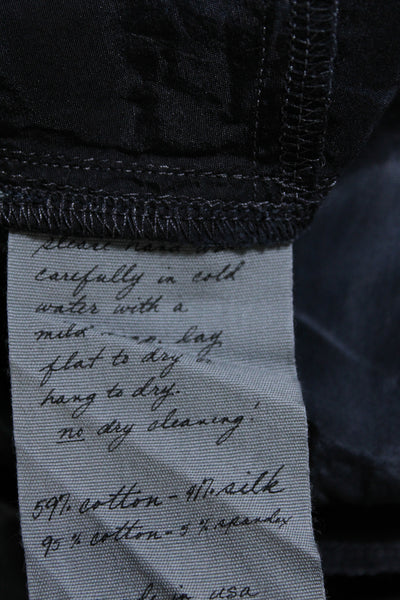 please hand wash
carefully in cold
water with a
mild lay
flat to dry
hang to dry.
no dry cleaning!
59% cotton - 41% silk
95% cotton - 5% spandex
in usa